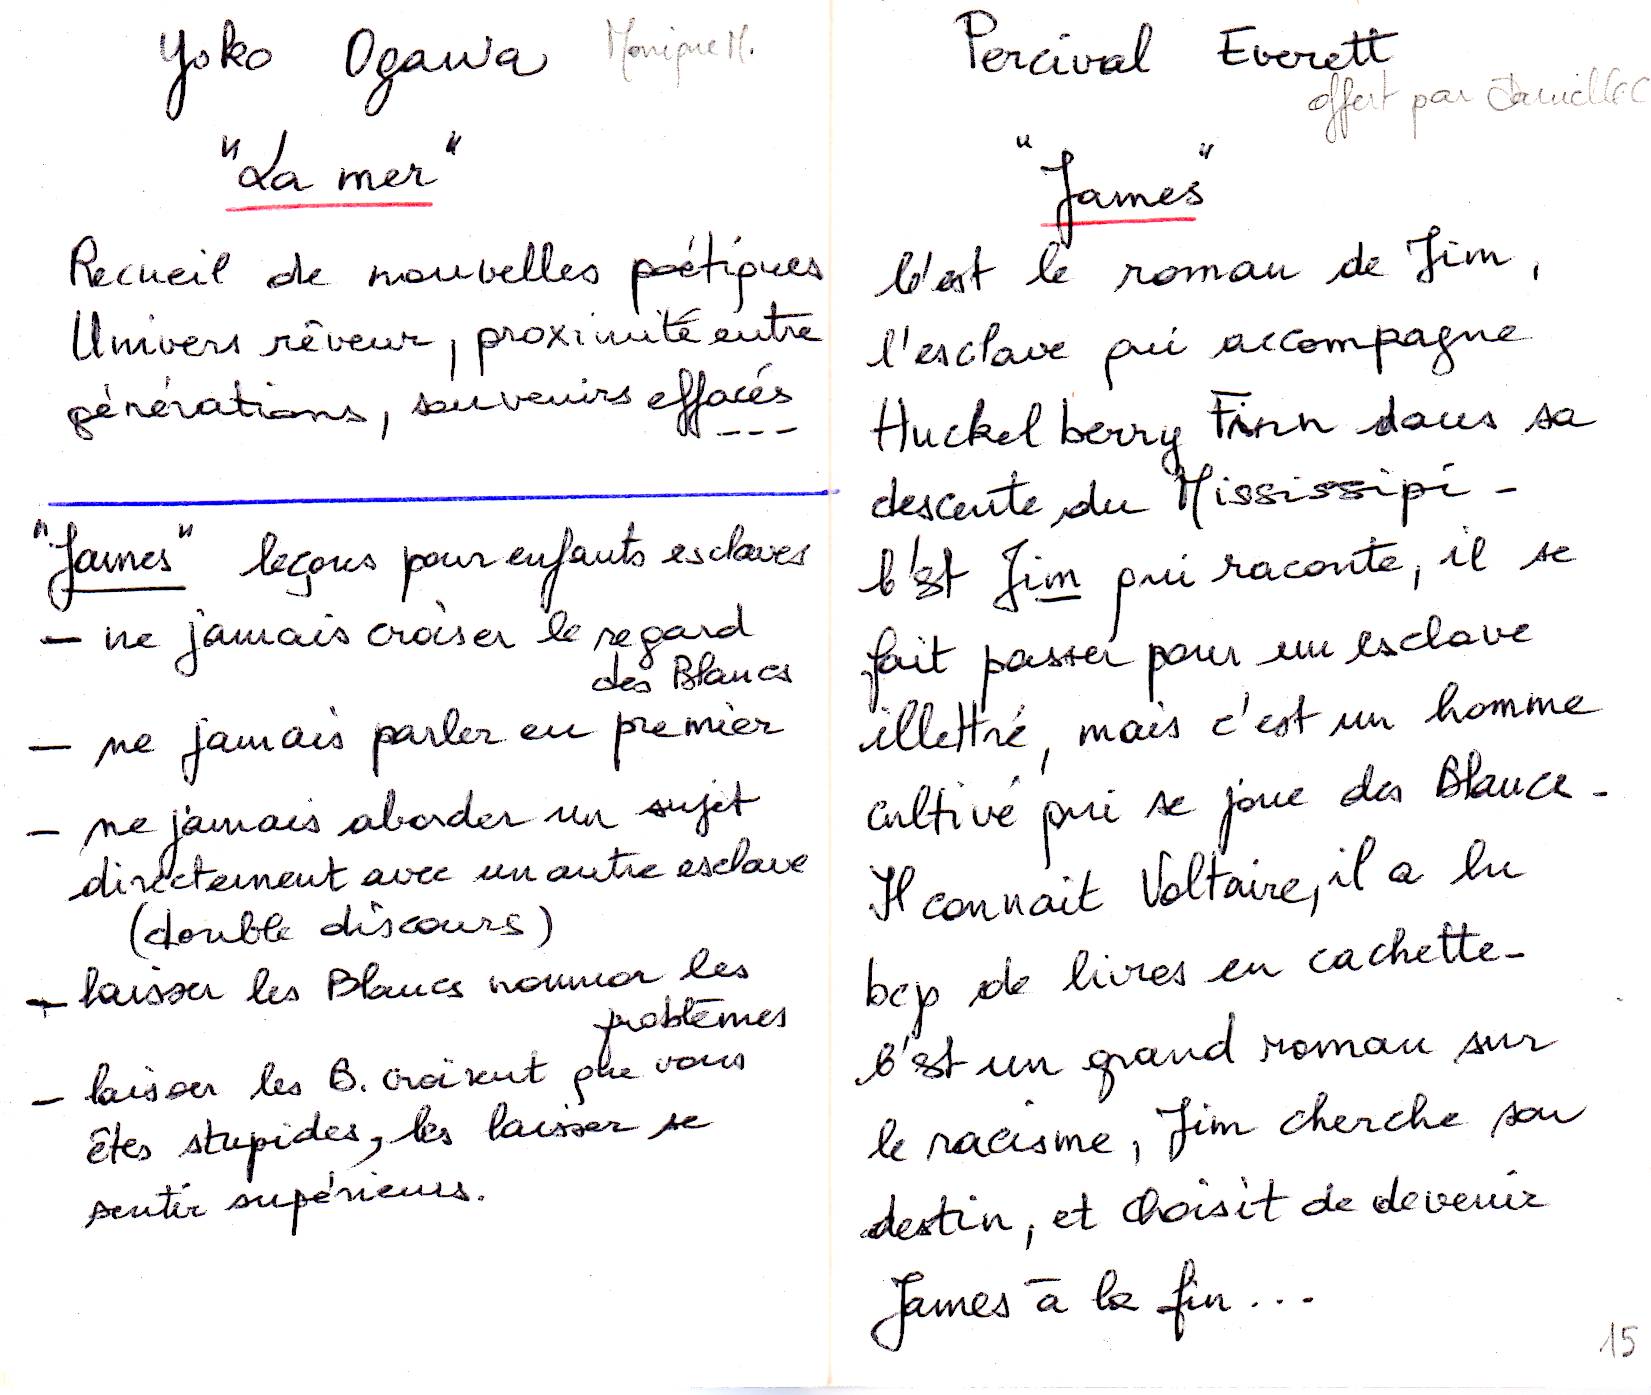 Yoko Ogawa Monique M.
"La mer"
Recueil de nouvelles poétiques
Univers rêveur, proximité entre
générations, souvenirs effacés
---
"James" leçons pour enfants esclaves
- ne jamais croiser le regard
des Blancs
- ne jamais parler en premier
- ne jamais aborder un sujet
directement avec un autre esclave
(double discours)
- laisser les Blancs nommer les
problèmes
- laisser les B. croient que vous
êtes stupides, les laisser se
sentir supérieurs.
Percival Everett
offert par Danielle C
"James"
C'est le roman de Jim,
l'esclave qui accompagne
Huckelberry Finn dans sa
descente du Mississipi -
C'est Jim qui raconte, il se
fait passer pour un esclave
illettré, mais c'est un homme
cultivé qui se joue des Blancs -
Il connait Voltaire, il a lu
bcp de livres en cachette -
C'est un grand roman sur
le racisme, Jim cherche son
destin, et choisit de devenir
James à la fin...
15